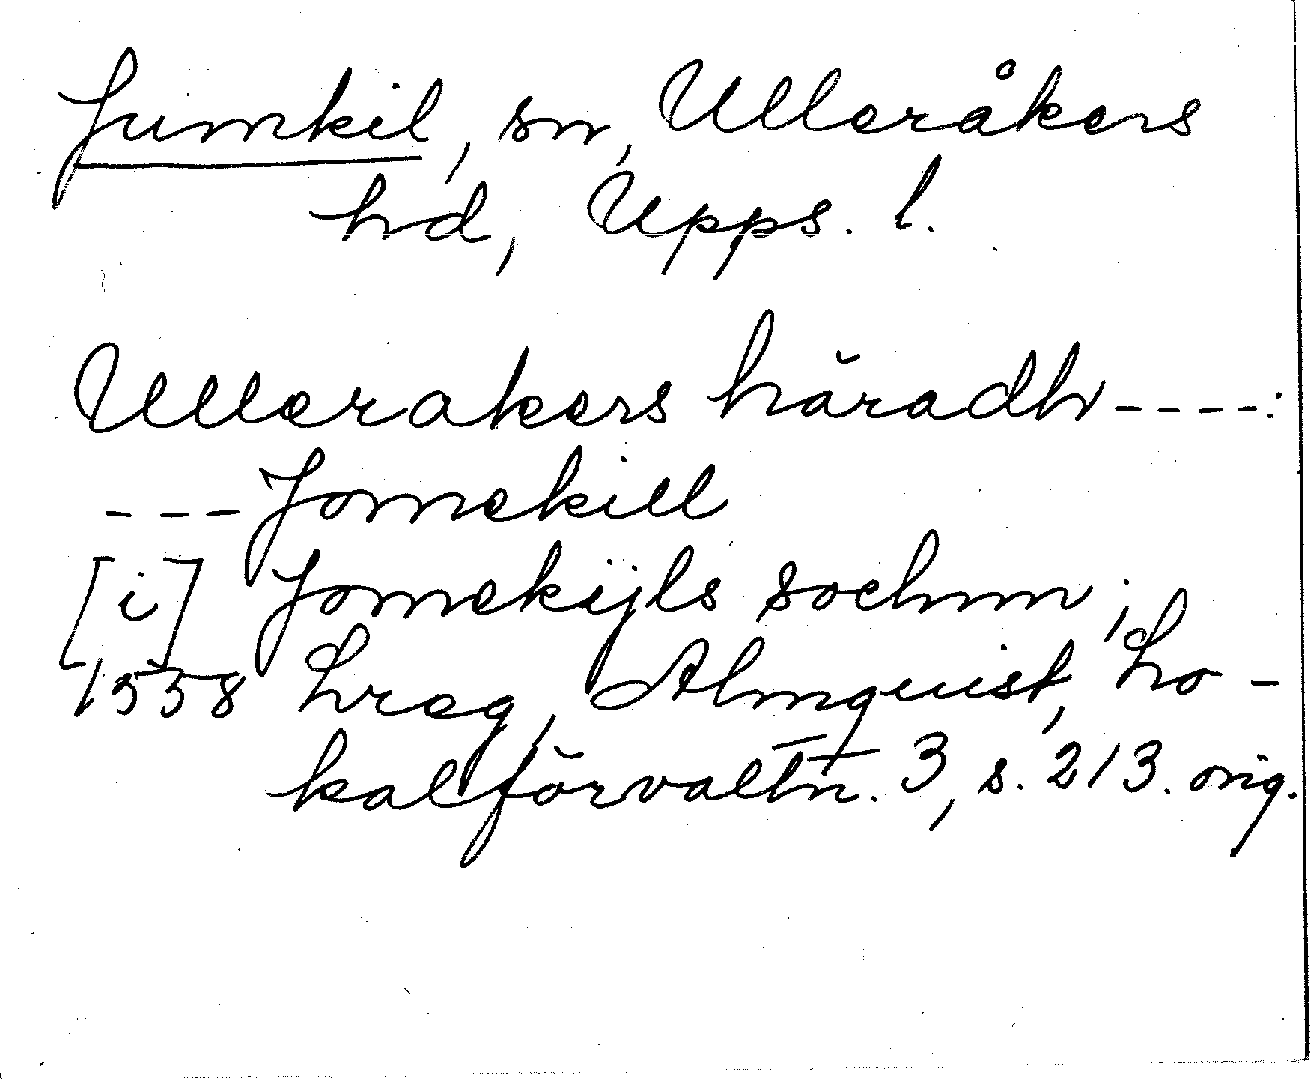 Jumkil, sn, Ulleråkers
hd, Upps. l.
Ullerakers häradh ----:
--- Jomekill
[i] Jomekijls sochnn ;
1558 hreg, Almquist, Lo-
kalförvaltn. 3, s. 213. orig.